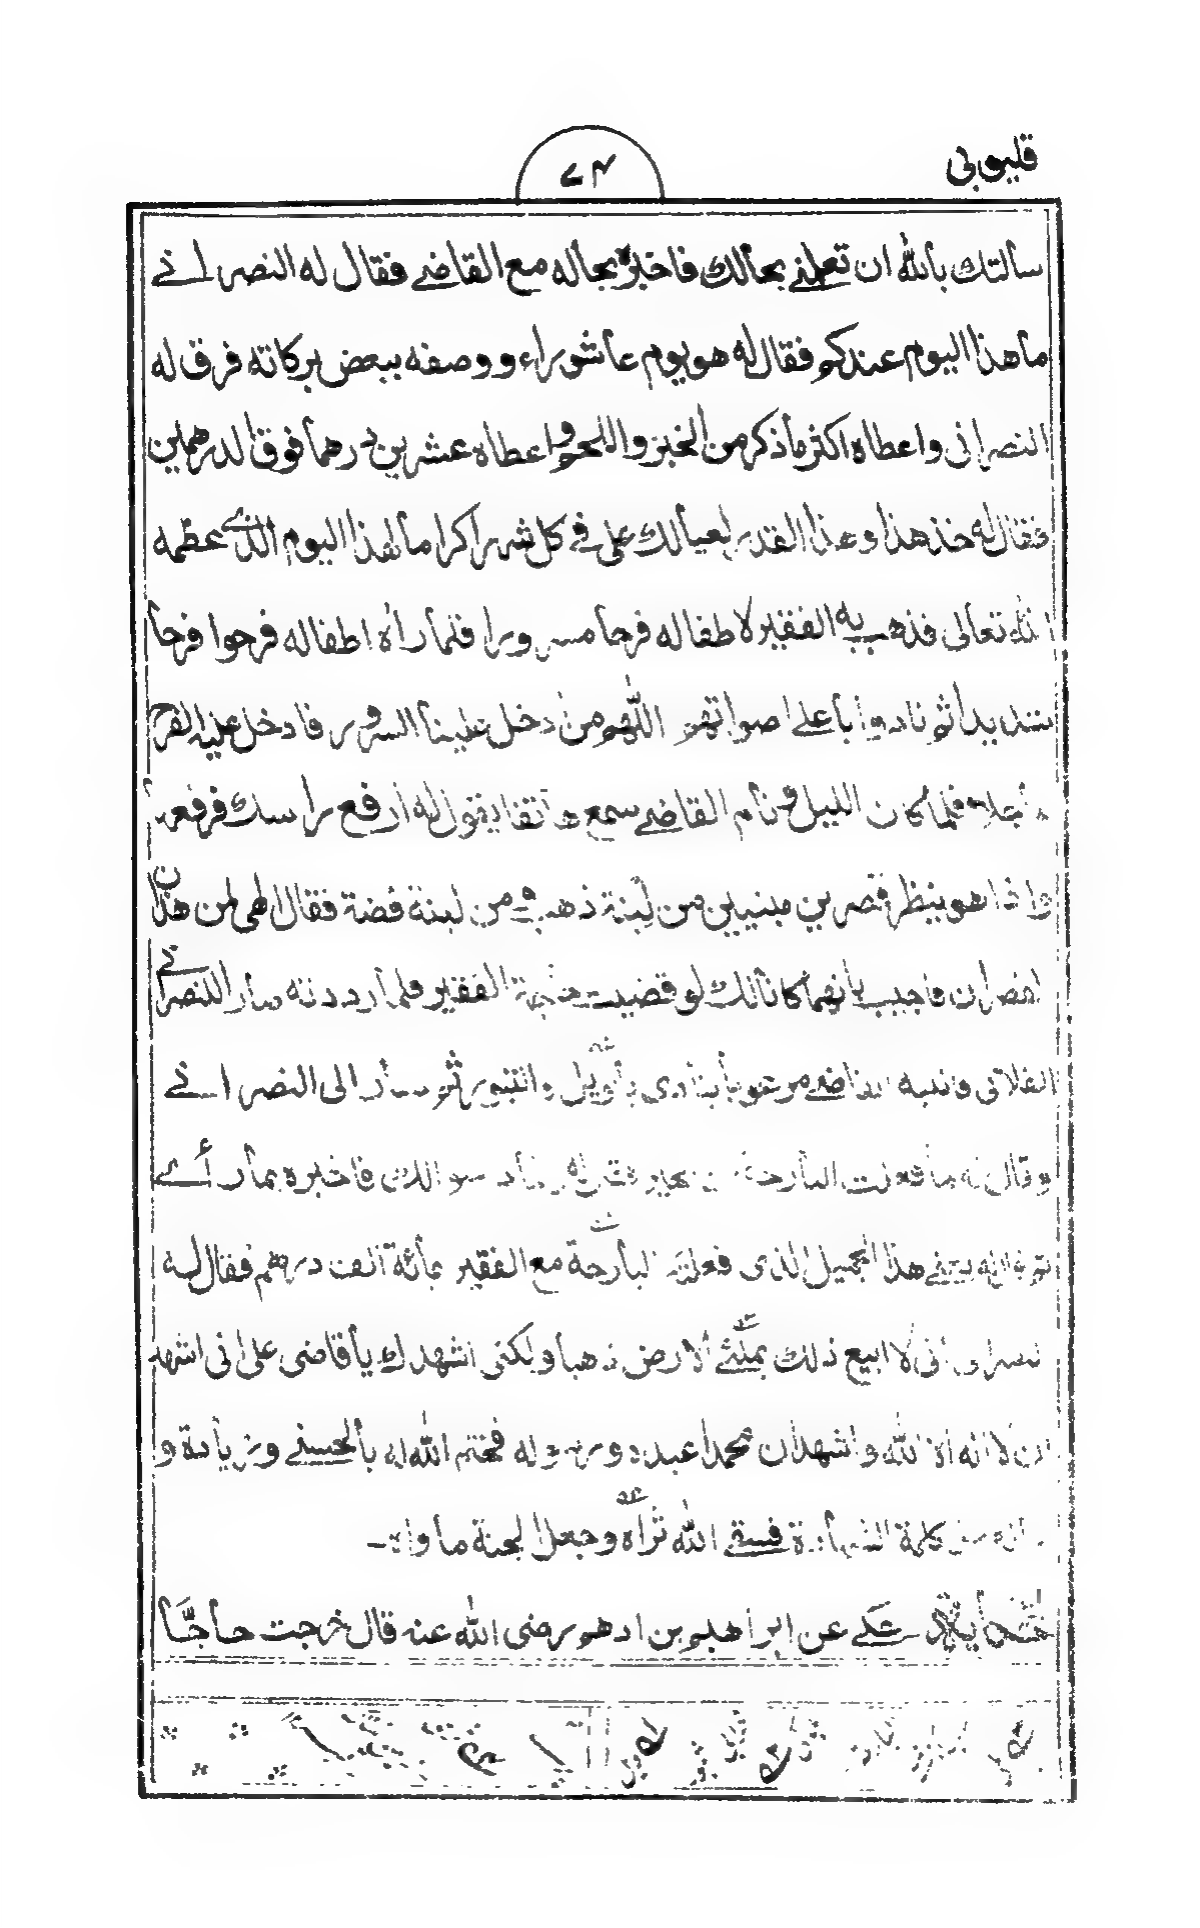 قليوبى
٧٤
سالتك بالله ان تعلمنے بحالك فاخبره بحاله مع القاضے فقال له النصرانے
ما هذا اليوم عندكم فقال له هو يوم عاشوراء ووصفه ببعض بركاته فرق له
النصرانى واعطاه اكثر ما ذكر من الخبز واللحم واعطاه عشرين درهما فوق الدرهمين
فقال له خذ هذا وهذا القدر لعيالك على فے كل شهر اكراما لهذا اليوم الذے عظمه
الله تعالى فذهب به الفقير لاطفاله فرحا مسرورا فلما راه اطفاله فرحوا فرحا
شديدا ثم نادوا باعلى اصواتهم اللهم من ادخل علينا السرور فادخل عليه الفرح
فلما كان الليل ونام القاضے سمع هاتفا يقول له ارفع راسك فرفعه
واذا هو ينظر قصرين مبنيين من لبنة ذهب ومن لبنة فضة فقال الهى لمن هذان
القصران فاجيب بانهما كانا لك لو قضيت حاجة الفقير فلما رددته صارا للنصرانے
الفلانى فانتبه القاضے مرعوبا ينادى بالويل والثبور ثم سار الى النصرانے
وقال له ما فعلت البارحة من خير فقال له وما سوالك فاخبره بما راے
ثم قال له بعنے هذا الجميل الذى فعلته البارحة مع الفقير بمائة الف درهم فقال له
النصرانى انى لا ابيع ذلك بملئے الارض ذهبا ولكنى اشهدك يا قاضى على انى اشهد
ان لا اله الا الله واشهد ان محمدا عبده ورسوله فختم الله له بالحسنے وزيادة و
كلمة الشهادة فسقے الله ثراه وجعل الجنة ماواه-
حكے عن ابراهيم بن ادهم رضى الله عنه قال خرجت حاجّا